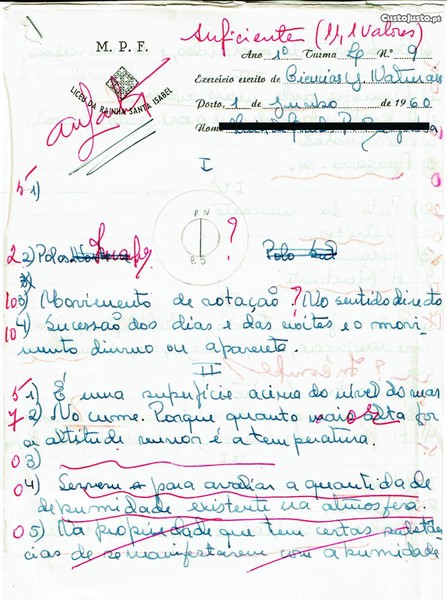 CustoJusto.pt
Suficiente (11,1 valores)
M. P. F.
Ano 1º Turma Nº 9
LICEU DA RAINHA SANTA ISABEL
Exercício escrito de Ciencias G. Naturais
Porto, 1 de Junho de 1960
Nome
I
5 1)
P.N
?
P.S
2 2) Polos Polo Sul
10 3) Movimento de rotação ? No sentido directo
10 4) Sucessão dos dias e das noites e o movi-
mento diurno ou aparente.
II
5 1) É uma superfície acima do nível do mar
7 2) No cume. Porque quanto mais alta for
a altitude menor é a temperatura.
0 3)
0 4) Servem para avaliar a quantidade
de pumidade existente na atmosfera.
0 5) Na propriedade que tem certas substân-
cias de se manifestarem com a pumidade